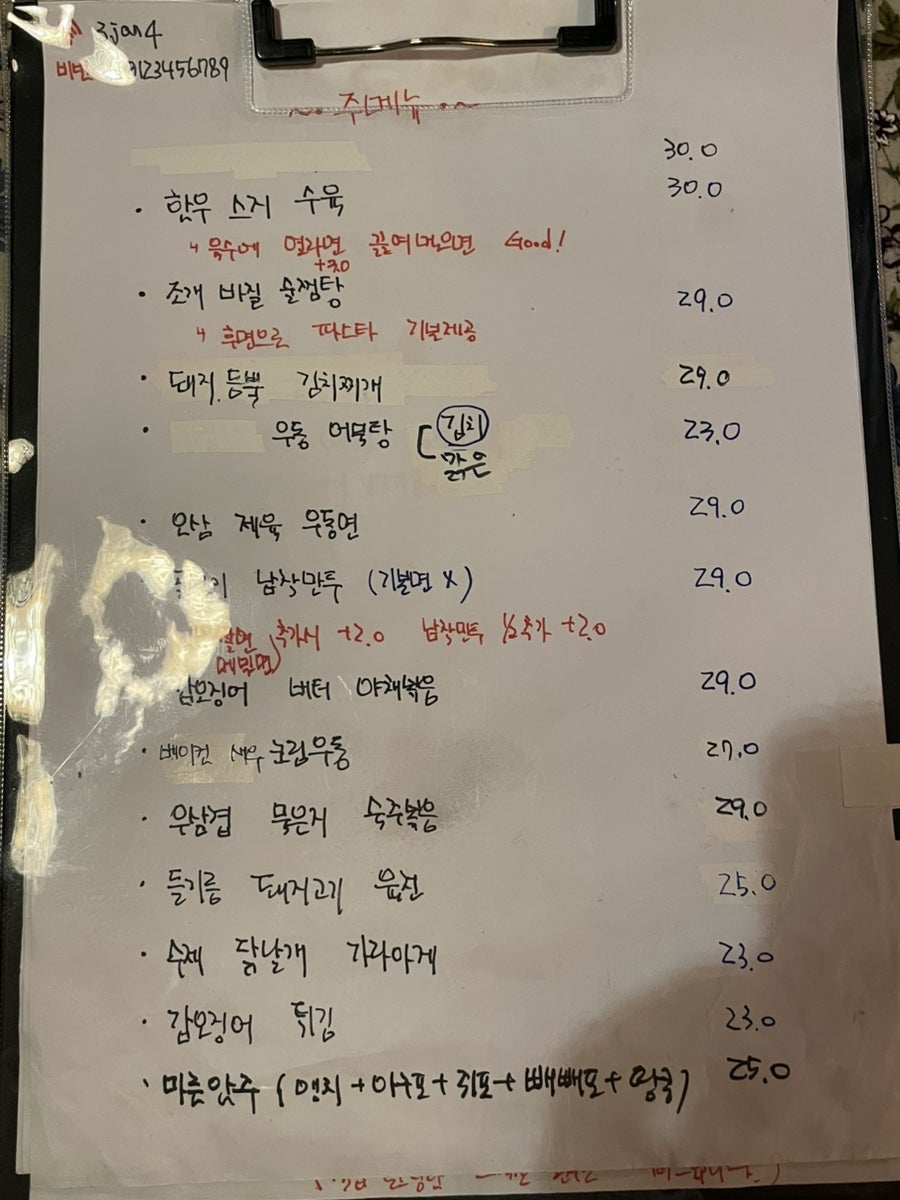 3jan4
비번 123456789
~. 주메뉴 .~
30.0
· 한우 스지 수육 30.0
↳ 육수에 열라면 끓여먹으면 Good!
+3.0
· 조개 바질 술찜탕 29.0
↳ 후면으로 파스타 기본제공
· 돼지 등뼈 김치찌개 29.0
· 우동 어묵탕 [김치 23.0
맑은
· 오삼 제육 우동면 29.0
납작만두 (기본면 X) 29.0
쫄면 추가시 +2.0 납작만두 ½추가 +2.0
메밀면
갑오징어 버터 야채볶음 29.0
· 베이컨 새우 크림우동 27.0
· 우삼겹 묵은지 숙주볶음 29.0
· 들기름 돼지고기 육전 25.0
· 수제 닭날개 가라아게 23.0
· 갑오징어 튀김 23.0
· 마른안주 (먹치 + 아구포 + 쥐포 + 빼빼포 + 땅콩) 25.0